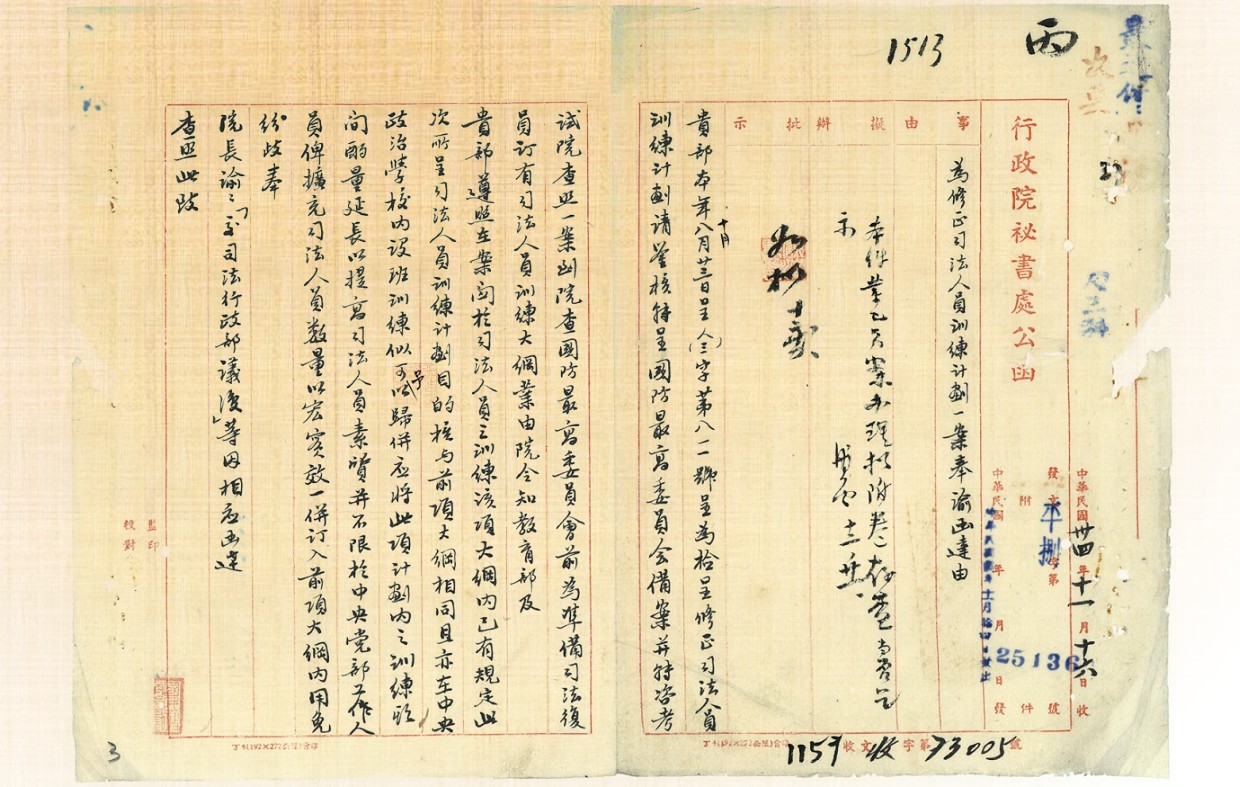 丙
1513
行政院祕書處公函
中華民國卅四年十一月十六日收
發文平捌字第25136號
附件
中華民國 年 月 日發
事由
擬辦
批示
為修正司法人員訓練計劃一案奉諭函達由
本件業已另案辦理擬附卷存查當否乞
示
如擬
貴部本年八月十月廿三日呈人(三)字第八一一號呈為拾呈修正司法人員
訓練計劃請鑒核轉呈國防最高委員會備案并轉咨考
收文收字第73005號
1157
試院查照一案到院查國防最高委員會前為準備司法復
員訂有司法人員訓練大綱業由院令知教育部及
貴部遵照在案關於司法人員之訓練該項大綱內已有規定此
次所呈司法人員訓練計劃目的核與前項大綱相同且亦在中央
政治學校內設班訓練似可予以歸併應將此項計劃內之訓練期
間酌量延長以提高司法人員素質并不限於中央党部工作人
員俾擴充司法人員數量以宏實效一併訂入前項大綱內用免
紛歧奉
院長諭：「交司法行政部議復」等因相應函達
查照此致
監印
校對
3